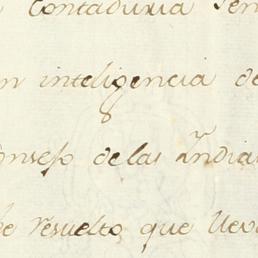 Contaduria Gen
n inteligencia de
onsejo de las Yndia
he resuelto, que llev